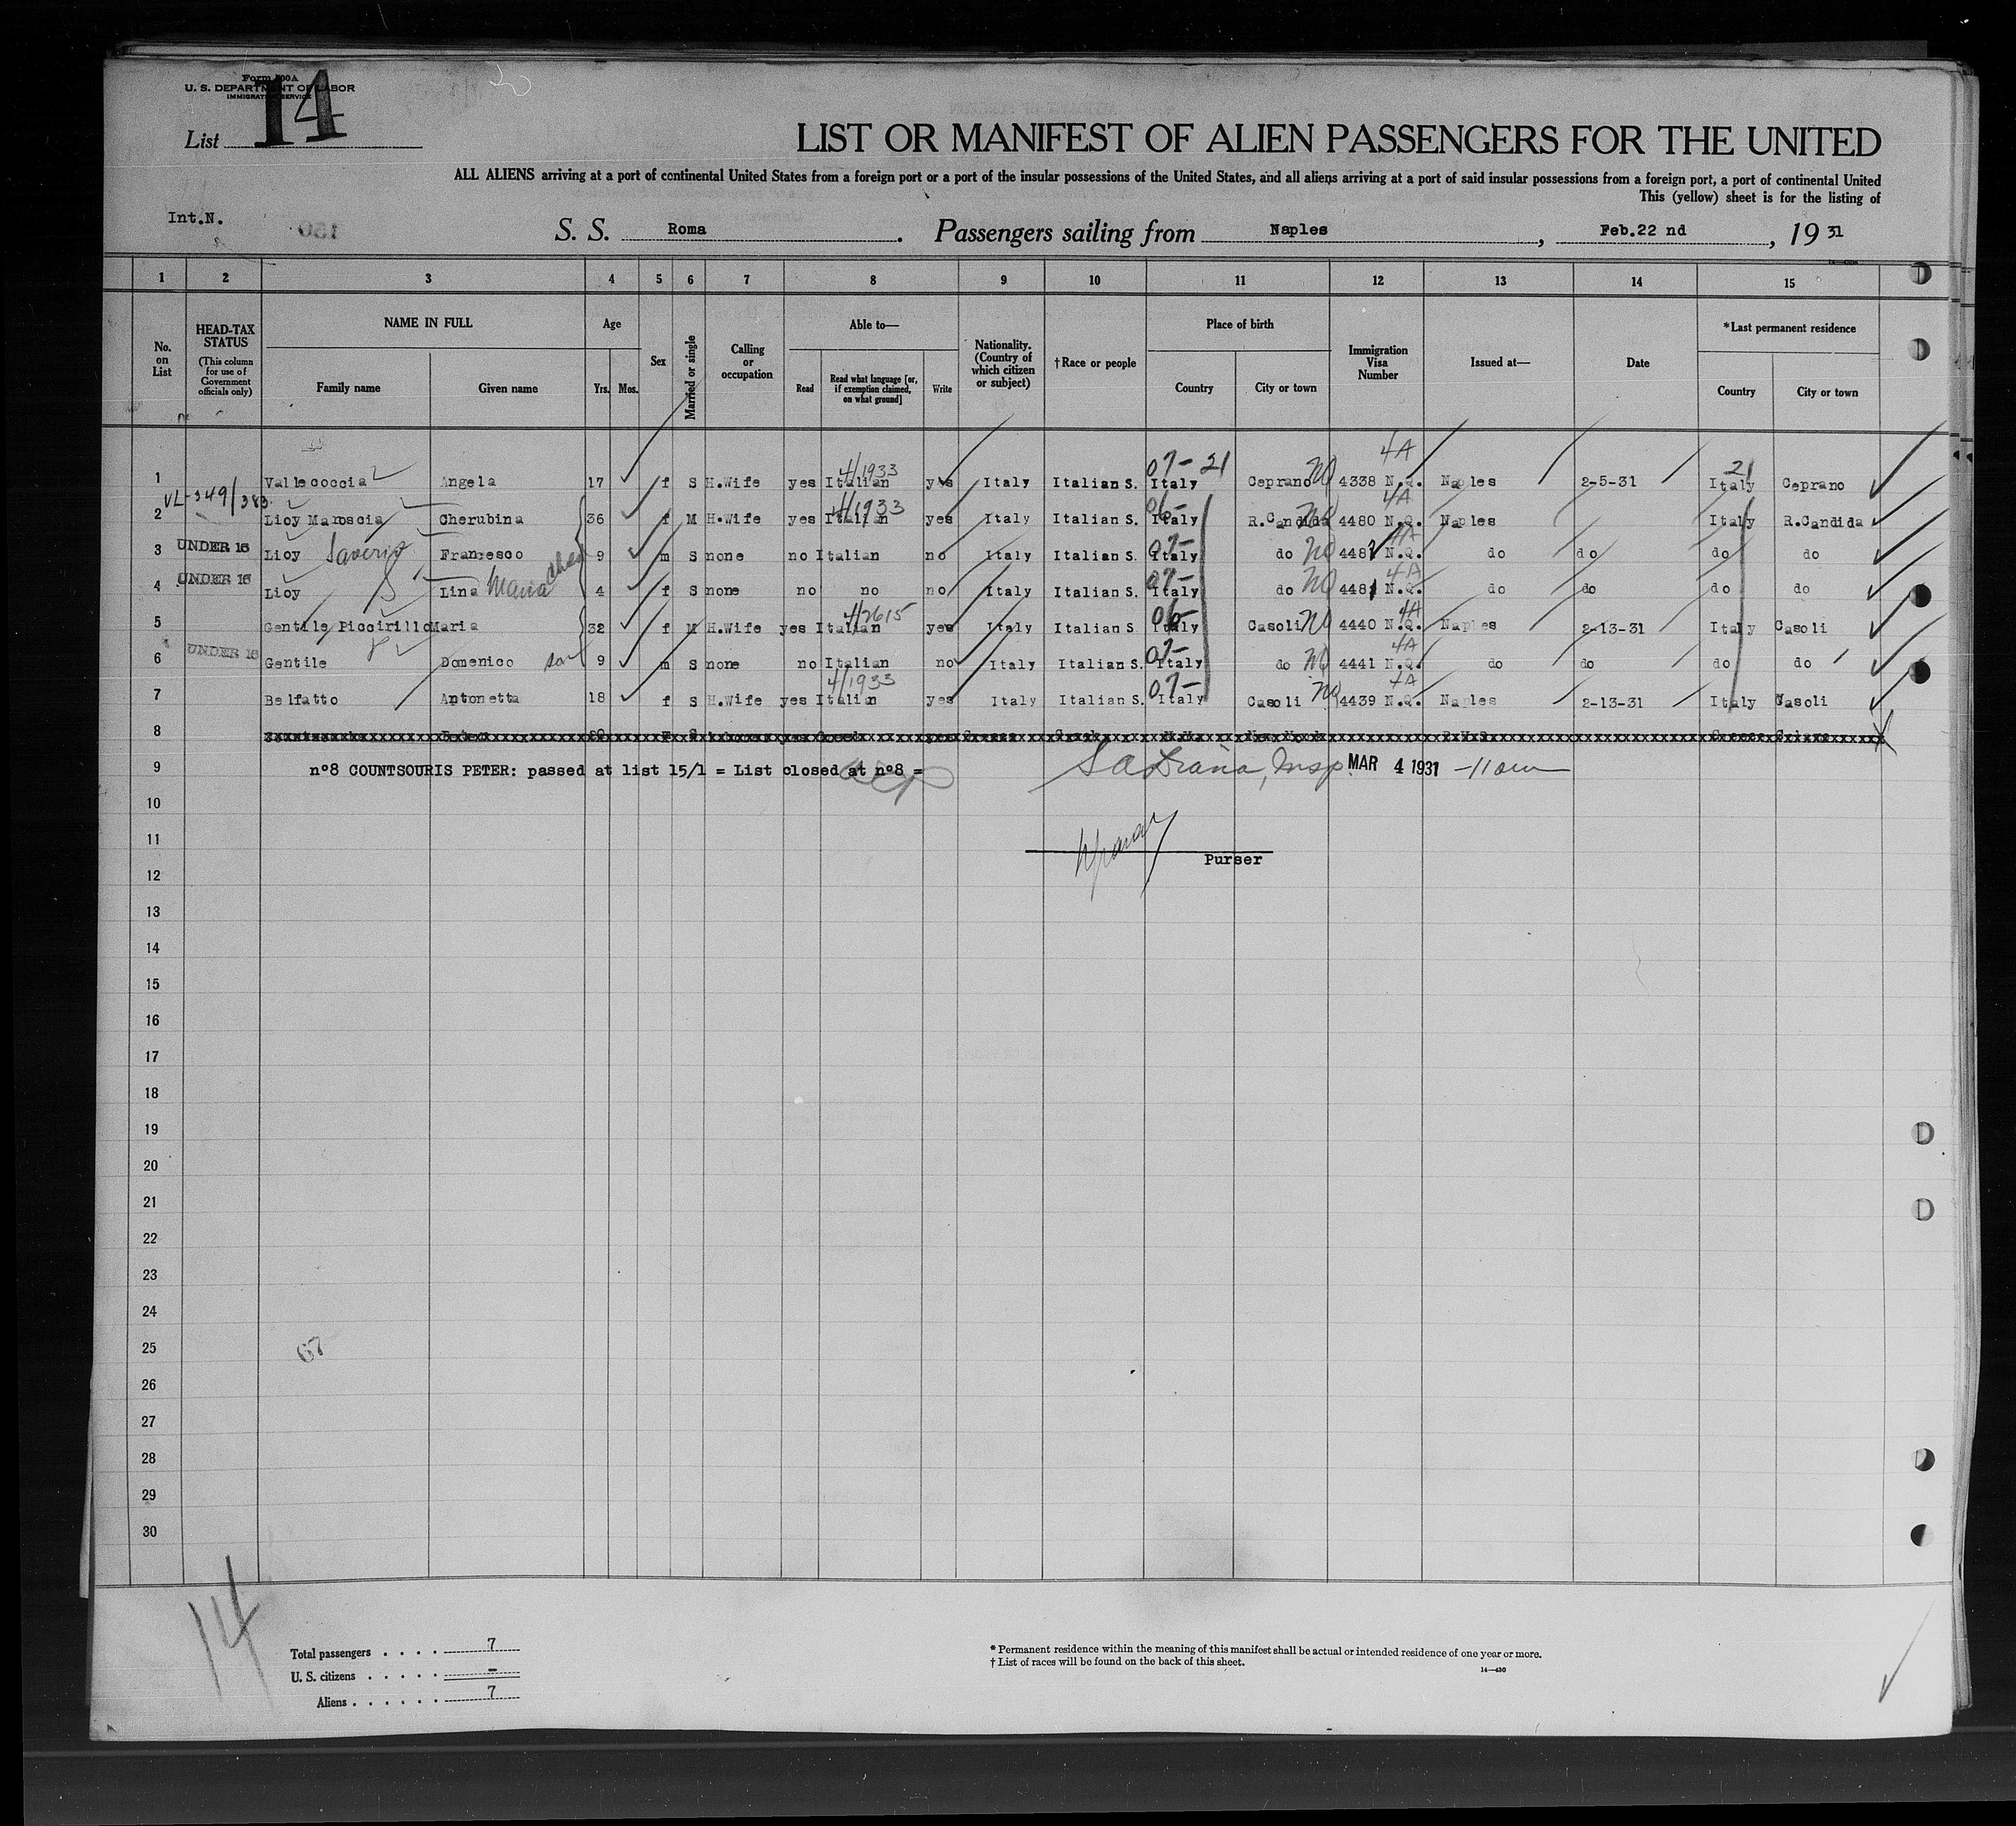 Form 500A
U. S. DEPARTMENT OF LABOR
IMMIGRATION SERVICE
List 14
LIST OR MANIFEST OF ALIEN PASSENGERS FOR THE UNITED
ALL ALIENS arriving at a port of continental United States from a foreign port or a port of the insular possessions of the United States, and all aliens arriving at a port of said insular possessions from a foreign port, a port of continental United
This (yellow) sheet is for the listing of
Int.N. 150
S. S. Roma. Passengers sailing from Naples, Feb.22 nd, 19 31
1 2 3 4 5 6 7 8 9 10 11 12 13 14 15
No. on List
HEAD-TAX STATUS (This column for use of Government officials only)
NAME IN FULL Family name Given name
Age Yrs. Mos.
Sex
Married or single
Calling or occupation
Able to— Read Read what language [or, if exemption claimed, on what ground] Write
Nationality. (Country of which citizen or subject)
†Race or people
Place of birth Country City or town
Immigration Visa Number
Issued at—
Date
*Last permanent residence Country City or town
4/1933 07- 21 4A 21
1 Vallecoccia Angela 17 f S H.Wife yes Italian yes Italy Italian S. Italy Ceprano NQ 4338 N.Q. Naples 2-5-31 Italy Ceprano
VL-349/383
4/1933 06- 4A
2 Lioy Maroscia Cherubina 36 f M H.Wife yes Italian yes Italy Italian S. Italy R.Candida NQ 4480 N.Q. Naples Italy R.Candida
07- 4A
3 UNDER 16 Lioy Saverio Francesco 9 m S none no Italian no Italy Italian S. Italy do NQ 4481 N.Q. do do do do
07- 4A
4 UNDER 16 Lioy Lina Maria 4 f S none no no no Italy Italian S. Italy do NQ 4481 N.Q. do do do do
4/2615 06- 4A
5 Gentile Piccirillo Maria 32 f M H.Wife yes Italian yes Italy Italian S. Italy Casoli NQ 4440 N.Q. Naples 2-13-31 Italy Casoli
07- 4A
6 UNDER 16 Gentile Domenico 9 m S none no Italian no Italy Italian S. Italy do NQ 4441 N.Q. do do do do
4/1933 07- 4A
7 Belfatto Antonetta 18 f S H.Wife yes Italian yes Italy Italian S. Italy Casoli NQ 4439 N.Q. Naples 2-13-31 Italy Casoli
8
9 n°8 COUNTSOURIS PETER: passed at list 15/1 = List closed at n°8 = Insp MAR 4 1931 -11 am
10
11
Purser
12
13
14
15
16
17
18
19
20
21
22
23
24
25
67
26
27
28
29
30
14
Total passengers . . . . 7
U. S. citizens . . . . . –
Aliens . . . . . . 7
* Permanent residence within the meaning of this manifest shall be actual or intended residence of one year or more.
† List of races will be found on the back of this sheet.
14—430